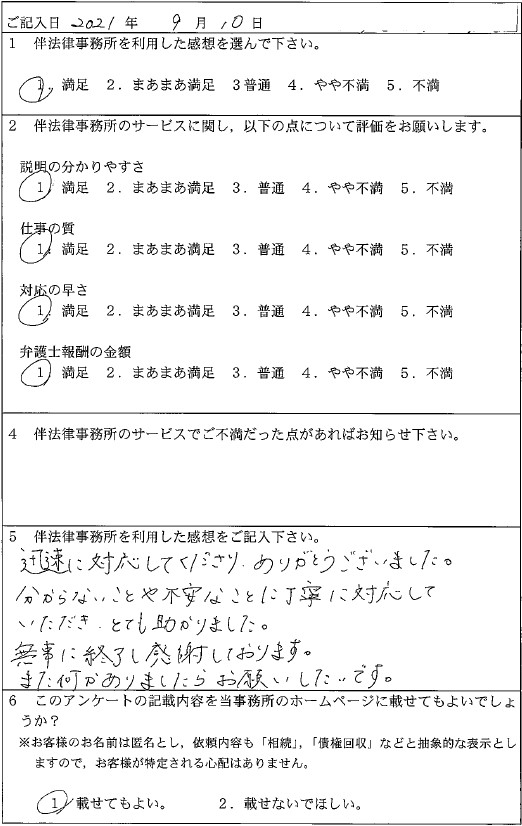 ご記入日 2021 年 9 月 10 日
1 伴法律事務所を利用した感想を選んで下さい。
1. 満足 2. まあまあ満足 3 普通 4. やや不満 5. 不満
2 伴法律事務所のサービスに関し,以下の点について評価をお願いします。
説明の分かりやすさ
1. 満足 2. まあまあ満足 3. 普通 4. やや不満 5. 不満
仕事の質
1. 満足 2. まあまあ満足 3. 普通 4. やや不満 5. 不満
対応の早さ
1. 満足 2. まあまあ満足 3. 普通 4. やや不満 5. 不満
弁護士報酬の金額
1 満足 2. まあまあ満足 3. 普通 4. やや不満 5. 不満
4 伴法律事務所のサービスでご不満だった点があればお知らせ下さい。
5 伴法律事務所を利用した感想をご記入下さい。
迅速に対応してくださり、ありがとうございました。
分からないことや不安なことに丁寧に対応して
いただき、とても助かりました。
無事に終了し感謝しております。
また何かありましたらお願いしたいです。
6 このアンケートの記載内容を当事務所のホームページに載せてもよいでしょ
うか?
※お客様のお名前は匿名とし,依頼内容も「相続」,「債権回収」などと抽象的な表示とし
ますので,お客様が特定される心配はありません。
1 載せてもよい。 2. 載せないでほしい。